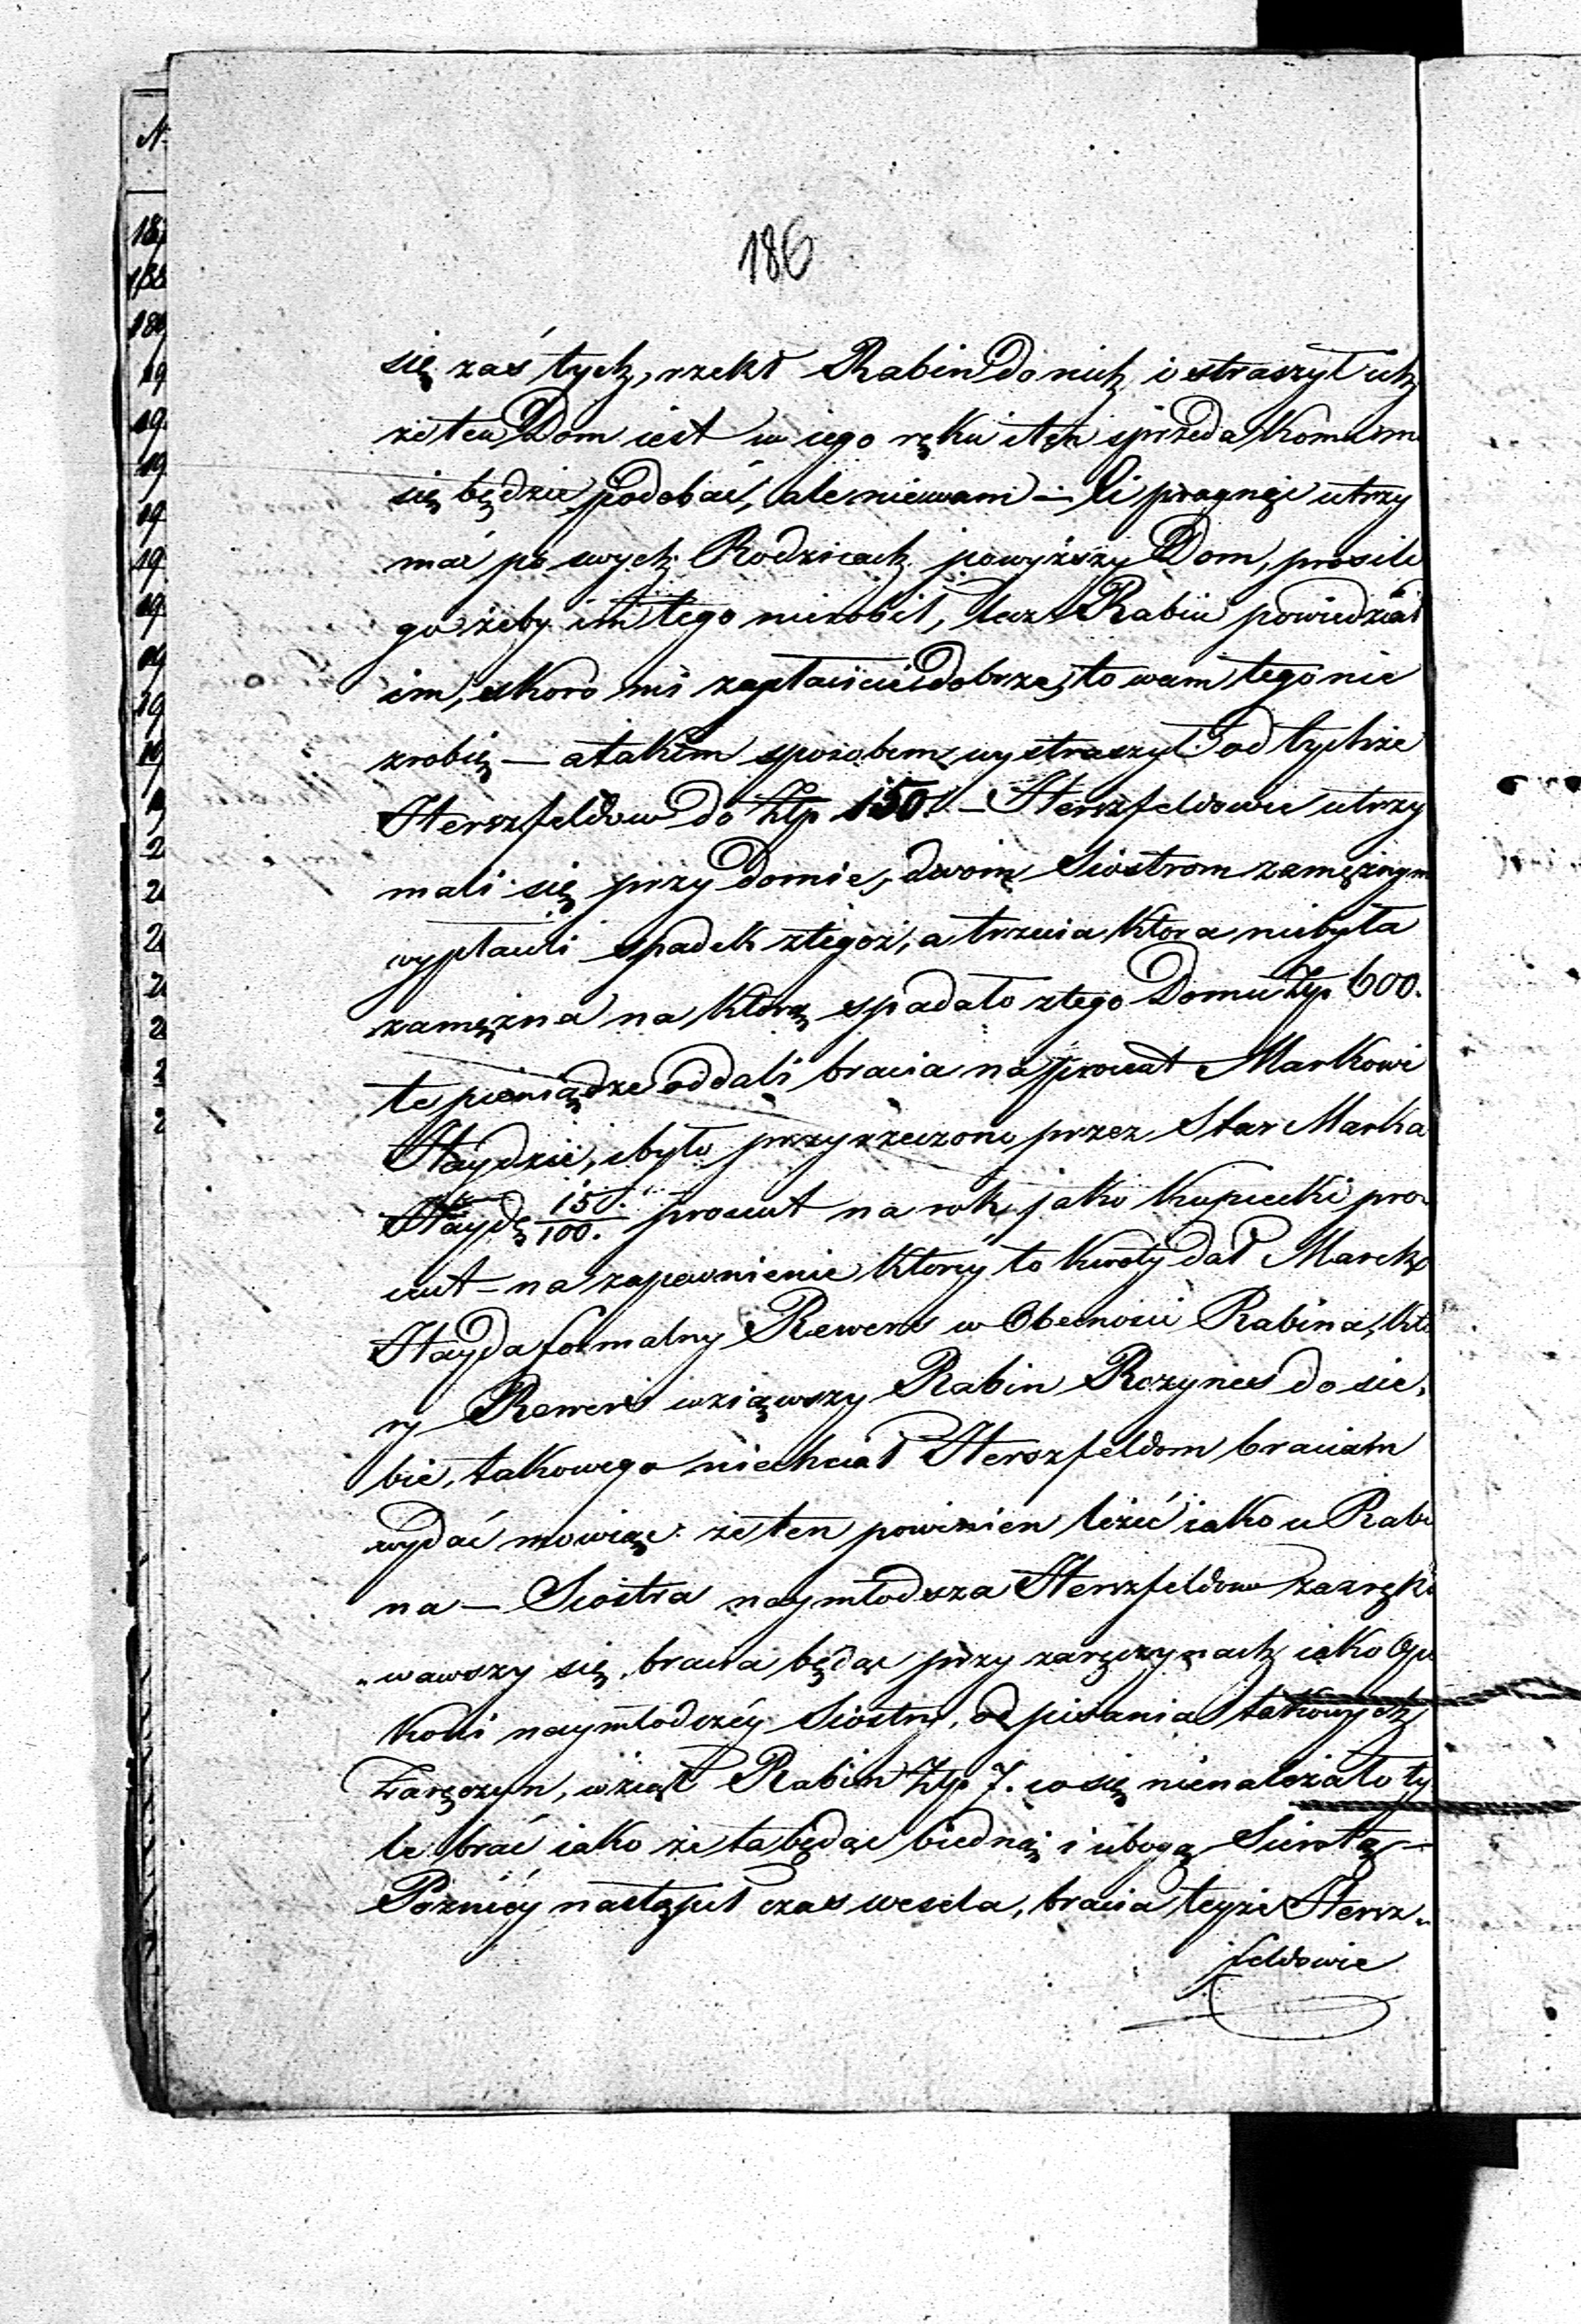 186
się zaś tych, rzekł Rabin do nich i straszył ich
że ten Dom iest w iego ręku i ten sprzeda komu mu
się będzie podobać, ale nie wam — Ci pragnąc utrzy
mać po swych Rodzicach powyższy Dom, prosili
go żeby im tego nierobił, lecz Rabin powiedział
im, skoro mi zapłacicie dobrze, to wam tego nie
zrobię — a takim sposobem wystraszył od tychże
Herszfeldow do Złp 150. — Herszfeldowie utrzy
mali się przy domie, dwoim Siostrom zamężnym
wypłacili spadek z tegoż, a trzecia ktora niebyła
zamężna na ktorą spadało z tego Domu Złp 600.
te pieniądze oddali bracia na procent Markowi
Haydzie, i było przyrzeczono przez Star Marka
Haydę 150/100. procent na rok jako kupiecki pro
cent – na zapewnienie ktorey to kwoty dał Marek
Hayda formalny Rewers w Obecności Rabina, kto
ry Rewers wziąwszy Rabin Rozynes do sie,
bie, takowego niechciał Herszfeldom braciom
wydać mowiąc: że ten powinien leżeć iako u Rabi
na — Siostra naymłodsza Herszfeldow zaręko
„wawszy się, bracia będąc przy zaręczynach iako Opie
koni naymłodszéy Siostry, od pisania takowych
Zaręczyn, wziął Rabin Złp 7. co się nienależało ty
le brać iako że ta będąc biedną i ubogą Sierotą —
Pozniéy nastąpił czas wesela, bracia teyże Hersz„
feldowie